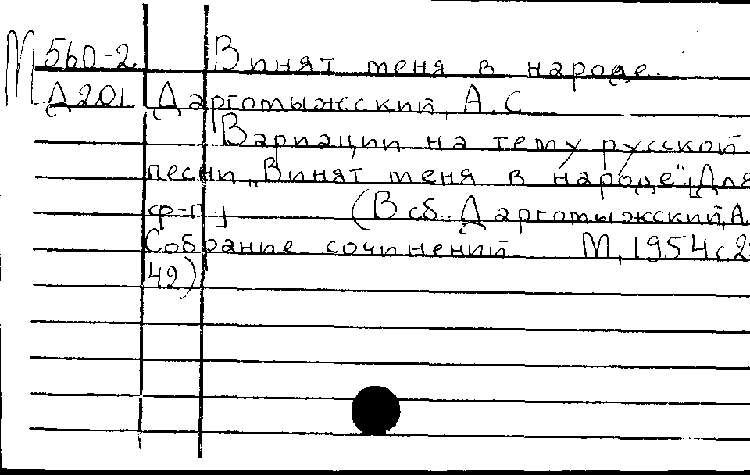 М 560-2 Винят меня в народе.
Д201 Даргомыжский, А.С
Вариации на тему русской
песни „Винят меня в народе" [Для
ф-п] (В сб. Даргомыжский, А.
Собрание сочинений М, 1954 с 2
42)